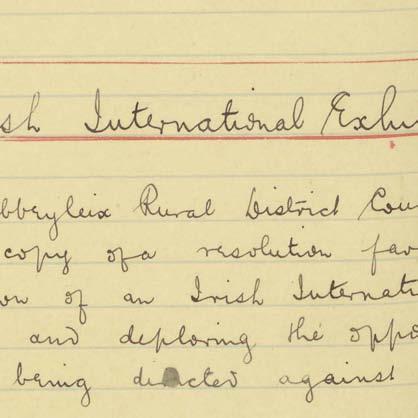 sh International Exhi
bbeyleix Rural District Cou
copy of a resolution fav
on of an Irish Internati
and deploring the oppo
being directed against